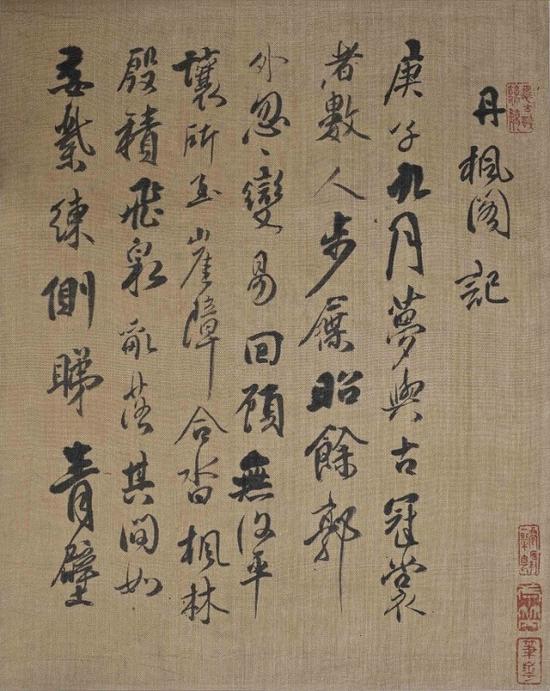 丹楓閣記
庚子九月夢與古冠裳
者數人步屧昭餘郭
外忽〻變易回顧無復平
壤所至崖障合沓楓林
殷積飛泉亂落其間如
練側睇青壁